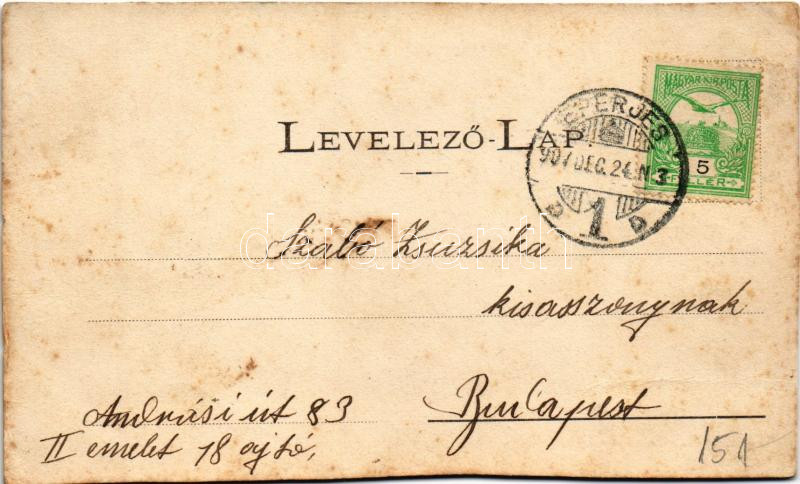 LEVELEZŐ-LAP
MAGYAR KIR. POSTA
5
FILLÉR
EPERJES
907 DEC. 24. N 3
1
D D
darabanth
Szabó Zsuzsika
kisasszonynak
Budapest
Andrási út 83
II emelet 18 ajtó.
151